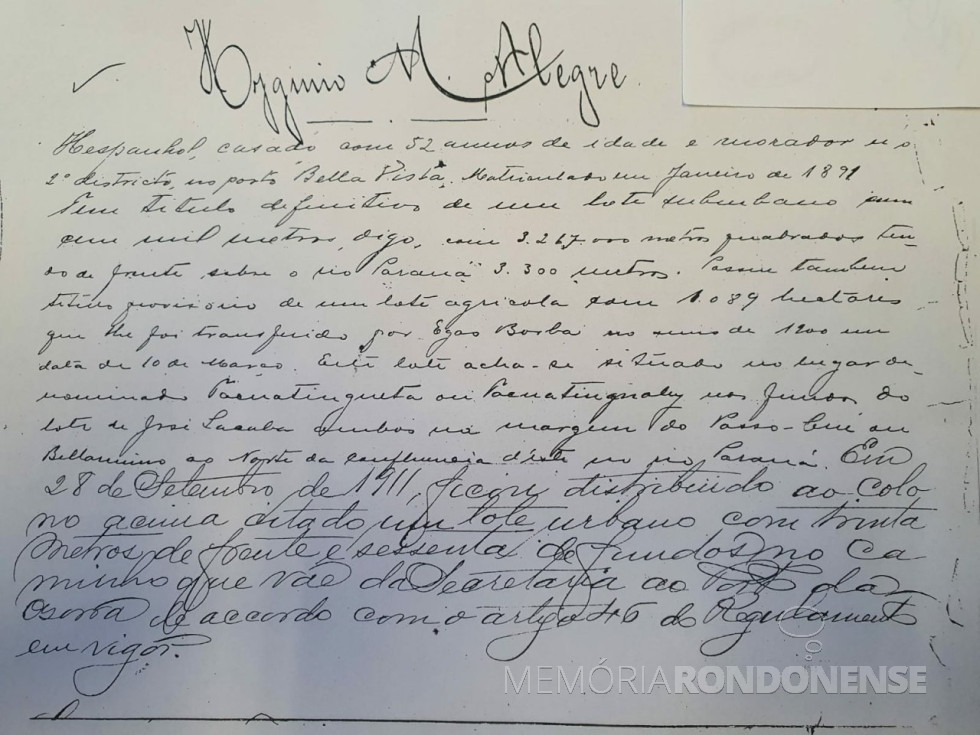 Hygino M. Alegre
Hespanhol, casado com 52 annos de idade e morador no
2º districto, no porto Bella Vista. Matriculado em Janeiro de 1891
Tem titulo definitivo de um lote suburbano com
cem mil metros, digo, com 3.267.000 metros quadrados ten-
do de frente sobre o rio Paraná 3.300 metros. Possue tambem
titulo provisorio de um lote agricola com 1.089 hectares
que lhe foi transferido por Borba no de 1900 em
data de 10 de Março. Este lote acha-se situado no lugar de-
nominado ou nos fundos do
lote de José ambos na margem do Passo-Cuê ou
Bellarmino ao Norte da confluencia d'este no rio Paraná. Em
28 de Setembro de 1911, ficou distribuido ao Colo
no acima citado um lote urbano com trinta
metros de frente e sessenta de fundos no Ca
minho que vae da Secretaria ao Porto da
de accordo com o artigo do Regulamento
em vigor.
MEMÓRIARONDONENSE